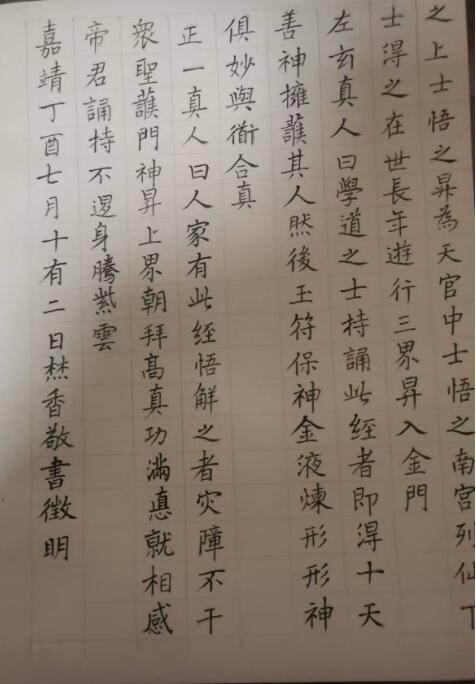 之上士悟之昇為天官中士悟之南宮列仙下
士得之在世長年遊行三界昇入金門
左玄真人曰學道之士持誦此經者即得十天
善神擁護其人然後玉符保神金液煉形形神
俱妙與衟合真
正一真人曰人家有此經悟解之者灾障不干
眾聖護門神昇上界朝拜高真功滿惪就相感
帝君誦持不退身騰紫雲
嘉靖丁酉七月十有二日焚香敬書徵明